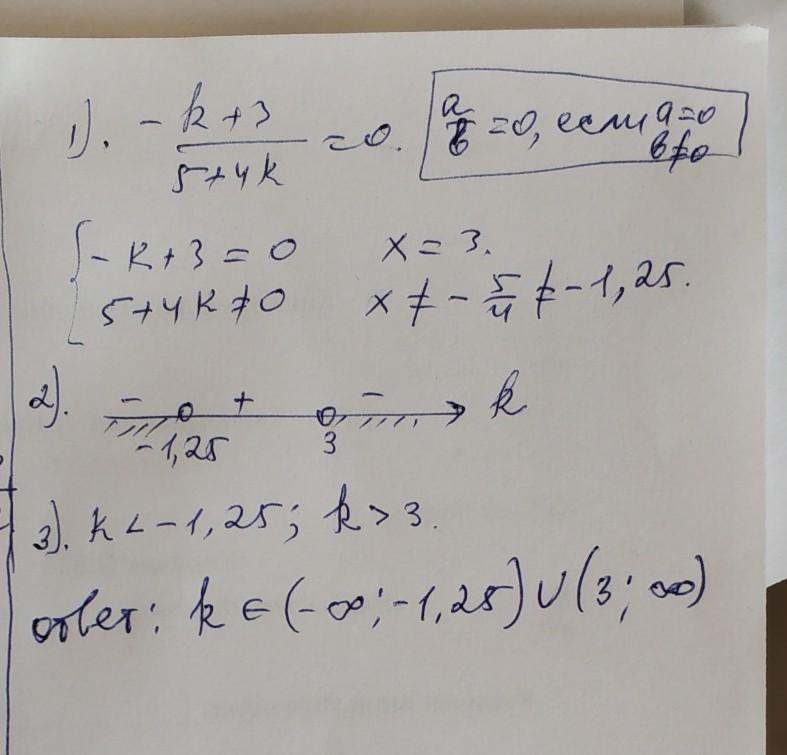 1). (-k+3)/(5+4k) =0. a/b =0, если a=0 b≠0
{ -k+3 = 0 x = 3.
5+4k≠0 x ≠ - 5/4 ≠ -1,25.
2). - + - k
-1,25 3
3). k < -1,25; k > 3.
ответ: k ∈ (-∞; -1,25) ∪ (3; ∞)